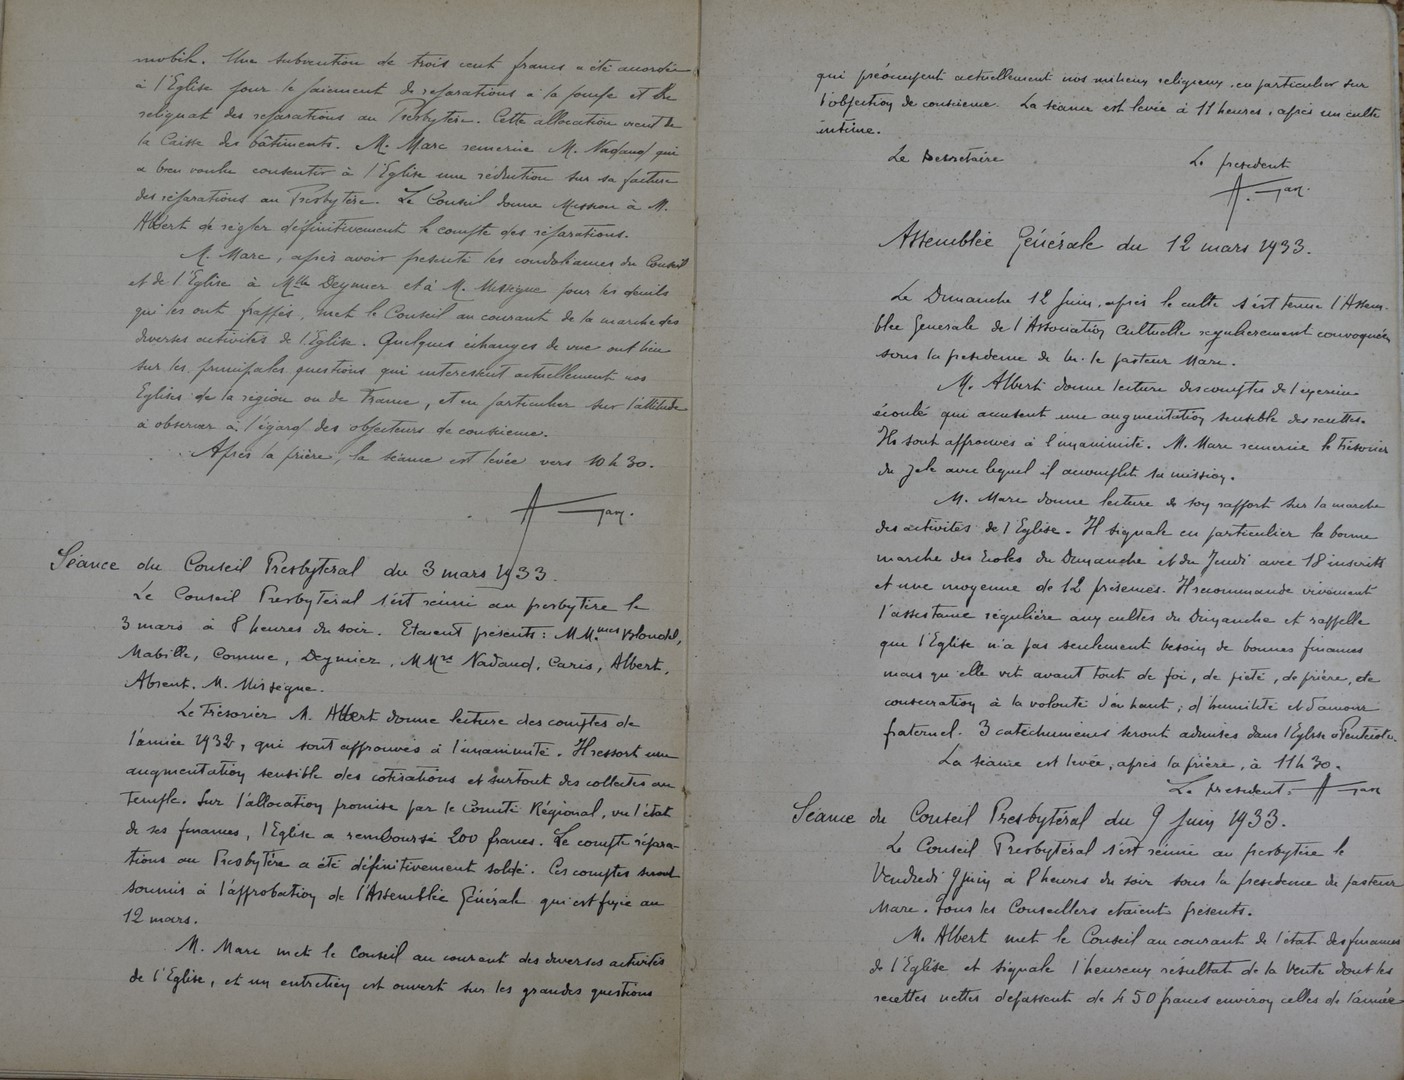 mobile. Une subvention de trois cent francs a été accordée
à l'Eglise pour le paiement de réparations à la pompe et du
reliquat des réparations au Presbytère. Cette allocation vient de
la Caisse des bâtiments. M. Marc remercie M. Nadaud qui
a bien voulu consentir à l'Eglise une réduction sur sa facture
des réparations au Presbytère. Le Conseil donne mission à M.
Albert de régler définitivement le compte des réparations.
M. Marc, après avoir présenté les condoléances du Conseil
et de l'Eglise à Mlle Deymier et à M. Missègue pour les deuils
qui les ont frappés, met le Conseil au courant de la marche des
diverses activités de l'Eglise. Quelques échanges de vue ont lieu
sur les principales questions qui intéressent actuellement nos
Eglises de la région ou de France, et en particulier sur l'attitude
à observer à l'égard des objecteurs de conscience.
Après la prière, la séance est levée vers 10 h 30.
Séance du Conseil Presbytéral du 3 mars 1933.
Le Conseil Presbytéral s'est réuni au presbytère le
3 mars à 8 heures du soir. Etaient présents : MM.mes Blondel,
Mabille, Comme, Deymier, MMrs Nadaud, Caris, Albert,
Absent. M. Missègue.
Le Trésorier M. Albert donne lecture des comptes de
l'année 1932, qui sont approuvés à l'unanimité. Il ressort une
augmentation sensible des cotisations et surtout des collectes au
Temple. Sur l'allocation promise par le Comité Régional, vu l'état
de ses finances, l'Eglise a remboursé 200 francs. Le compte répara-
tions au Presbytère a été définitivement soldé. Ces comptes seront
soumis à l'approbation de l'Assemblée Générale qui est fixée au
12 mars.
M. Marc met le Conseil au courant des diverses activités
de l'Eglise, et un entretien est ouvert sur les grandes questions
qui préoccupent actuellement nos milieux religieux, en particulier sur
l'objection de conscience. La séance est levée à 11 heures, après un culte
intime.
Le Secrétaire Le president
Assemblée Générale du 12 mars 1933.
Le Dimanche 12 Juin, après le culte s'est tenue l'Assem-
blée Generale de l'Association Cultuelle regulierement convoquée,
sous la presidence de M. le pasteur Marc.
M. Albert donne lecture des comptes de l'exercice
écoulé qui accusent une augmentation sensible des recettes.
Ils sont approuvés à l'unanimité. M. Marc remercie le Trésorier
du zele avec lequel il accomplit sa mission.
M. Marc donne lecture de son rapport sur la marche
des activités de l'Eglise. Il signale en particulier la bonne
marche des Ecoles du Dimanche et du Jeudi avec 18 inscrits
et une moyenne de 12 présences. Il recommande vivement
l'assistance régulière aux cultes du Dimanche et rappelle
que l'Eglise n'a pas seulement besoin de bonnes finances
mais qu'elle vit avant tout de foi, de piété, de prière, de
consecration à la volonté d'en haut ; d'humilité et d'amour
fraternel. 3 catéchumènes seront admises dans l'Eglise à Pentecôte.
La séance est levée, après la prière, à 11 h 30.
Le president :
Séance du Conseil Presbytéral du 9 Juin 1933.
Le Conseil Presbytéral s'est réuni au presbytère le
Vendredi 9 Juin à 8 heures du soir sous la presidence du pasteur
Marc. Tous les Conseillers etaient présents.
M. Albert met le Conseil au courant de l'état des finances
de l'Eglise et signale l'heureux résultat de la Vente dont les
recettes nettes dépassent de 450 francs environ celles de l'année